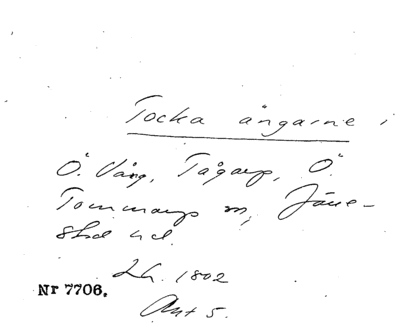 Tocka ängarne i
Ö. Vång, Tågarp, Ö.
Tommarp m, Järre-
stad hd.
LA. 1802
Nr 7706.
Akt 5.